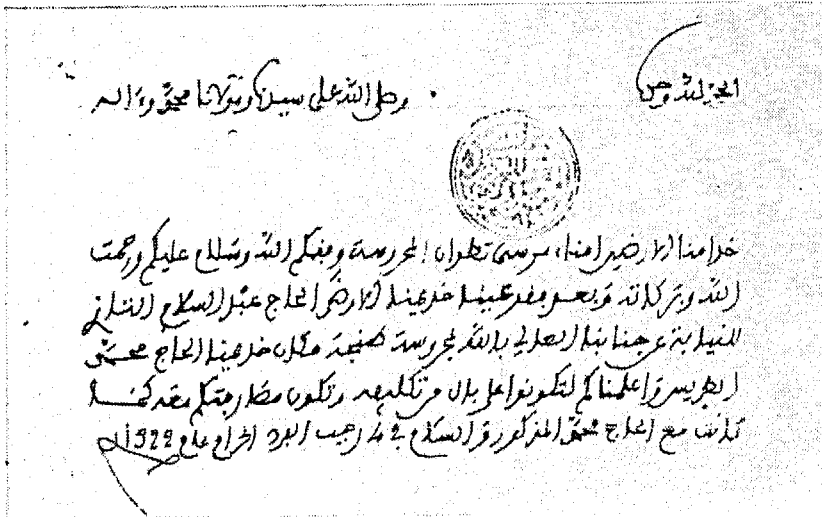 الحمد لله وحده وصلى الله على سيدنا ومولانا محمد وءاله
خدامنا الارضين امناء مرسى تطوان المحروسة وفقكم الله وسلام عليكم ورحمت
الله وبركاته وبعد فقد عيننا خديمنا الارضى الحاج عبد السلام التازي
للنيابة عن جنابنا العالي بالله بمحروسة طنجة مكان خديمنا الحاج محمد
الطريس واعلمناكم لتكونوا على بال من تكليفه وتكون مفاوضتكم معه كما
كانت مع الحاج محمد المذكور والسلام في 4 رجب الفرد الحرام عام 1329